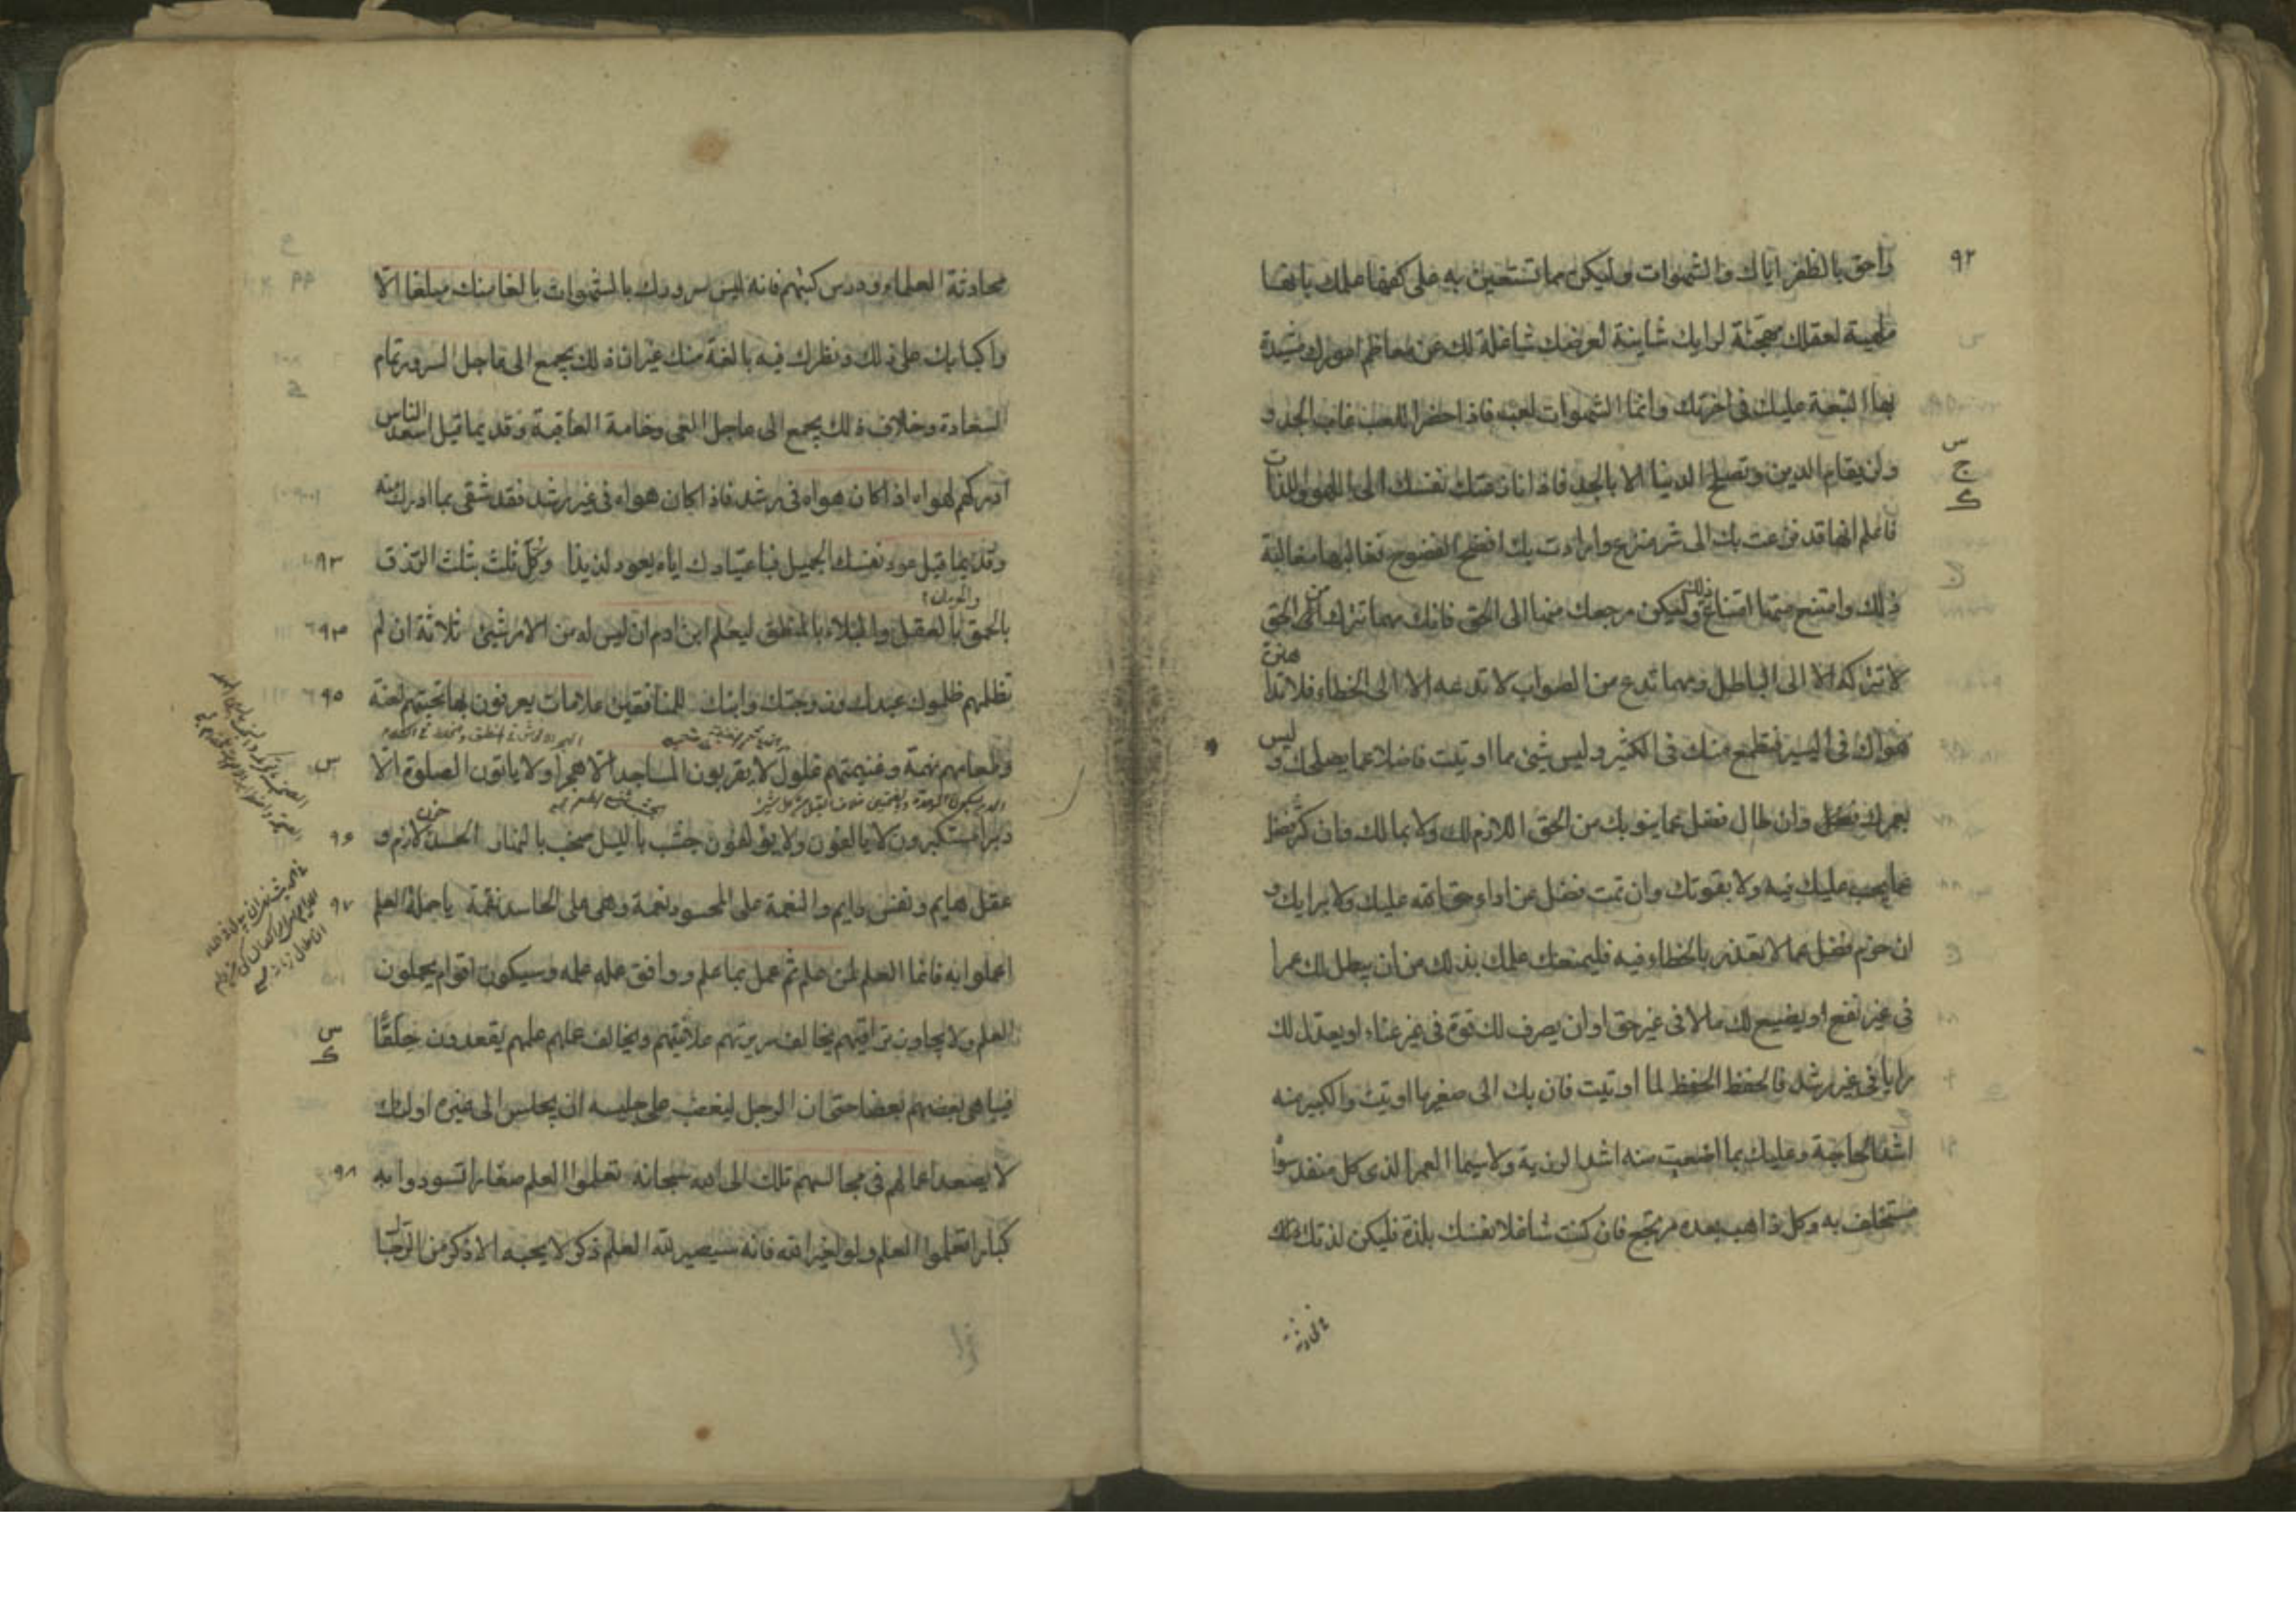 ٩٢
واحق بالظفر اياك والشهوات وليكن مما تستعين به على كفها علمك بانها
ملهية لعقلك مهجنة لرايك شاينة لعرضك شاغلة لك عن معاظم امورك مشيدة
بها التبعة عليك في اخرتك وانما الشهوات لعب فاذا حضر اللعب غاب الجد و
س
ج
ولن يقام الدين وتصلح الدنيا الا بالجد فاذا نازعتك نفسك الى اللهو واللذات
فاعلم انها قد نزعت بك الى شر منزع وارادت بك افضح الفضوح فغالبها مغالبة
ذلك وامتنع منها امتناع ذلك وليكن مرجعك منها الى الحق فانك مهما تترك من الحق
لا تتركه الا الى الباطل ومهما تدع من الصواب لا تدعه الا الى الخطاء فلا تدا
هواك في اليسير فيطمع منك في الكثير وليس شيئ مما اوتيت فاضلا عما يصلحك و
ليس
لعمرك فضل وان طال فضل عما ينوبك من الحق اللازم لك ولا بمالك وان كثر فضل
عما يجب عليك فيه ولا بقوتك وان تمت فضل عن اداء حق الله عليك ولا برايك و
ان حزم فضل عما لا تعذر بالخطاء فيه فليمنعك علمك بذلك من ان يطل لك عمرا
في غير نفع او يضيع لك مالا في غير حق او ان يصرف لك قوة في غير غناء او يعدل لك
رايا في غير رشد فالحفظ الحفظ لما اوتيت فان بك الى صغير ما اوتيت والكبير منه
اشد الحاجة وعليك بما اضعت منه اشد الرزية ولا سيما العمر الذي كل منفد سواه
مستخلف به وكل ذاهب بعده مرتجع فان كنت شاغلا نفسك بلذة فليكن لذتك في
محادثة
محادثة العلماء ودرس كتبهم فانه ليس سرورك بالشهوات بالغا منك مبلغا الا
واكبابك على ذلك ونظرك فيه بالغة منك غير ان ذلك يجمع الى عاجل السرور تمام
السعادة وخلاف ذلك يجمع الى عاجل الغي وخامة العاقبة وقديما قيل اسعد الناس
ادركهم لهواه اذا كان هواه في رشد فاذا كان هواه في غير رشد فقد شقي بما ادرك منه
وقديما قيل عود نفسك الجميل فباعتيادك اياه يعود لذيذا وكل ثلث بثلث الرزق ٩٣
والحرمان
بالحمق بالعقل والبلاء بالمنطق ليعلم ابن ادم ان ليس له من الامر شيئ ثلاثة ان لم ٩٤
تظلمهم ظلموك عبدك وزوجتك وابنك للمنافقين علامات يعرفون بها تحيتهم لعنة ٩٥
وطعامهم نهمة وغنيمتهم غلول لا يقربون المساجد الا هجرا ولا ياتون الصلوة الا س
دبرا مستكبرون لا يالفون ولا يؤلفون خشب بالليل صخب بالنهار الحسد حزن لازم و ٩٦
عقل هايم ونفس دايم والنعمة على المحسود نعمة وهي على الحاسد نقمة يا حملة العلم ٩٧
اعملوا به فانما العلم لمن علم ثم عمل بما علم ووافق عمله علمه وسيكون اقوام يحملون
العلم ولا يجاوز تراقيهم يخالف سريرتهم علانيتهم ويخالف عملهم علمهم يقعدون حلقا س
فيباهي بعضهم بعضا حتى ان الرجل ليغضب على جليسه ان يجلس الى غيره اولئك
لا يصعد اعمالهم في مجالسهم تلك الى الله سبحانه تعلموا العلم صغارا تسودوا به ٩٨
كبارا تعلموا العلم ولو لغير الله فانه سيصير لله العلم ذكر لا يحبه الا ذكر من الرجال